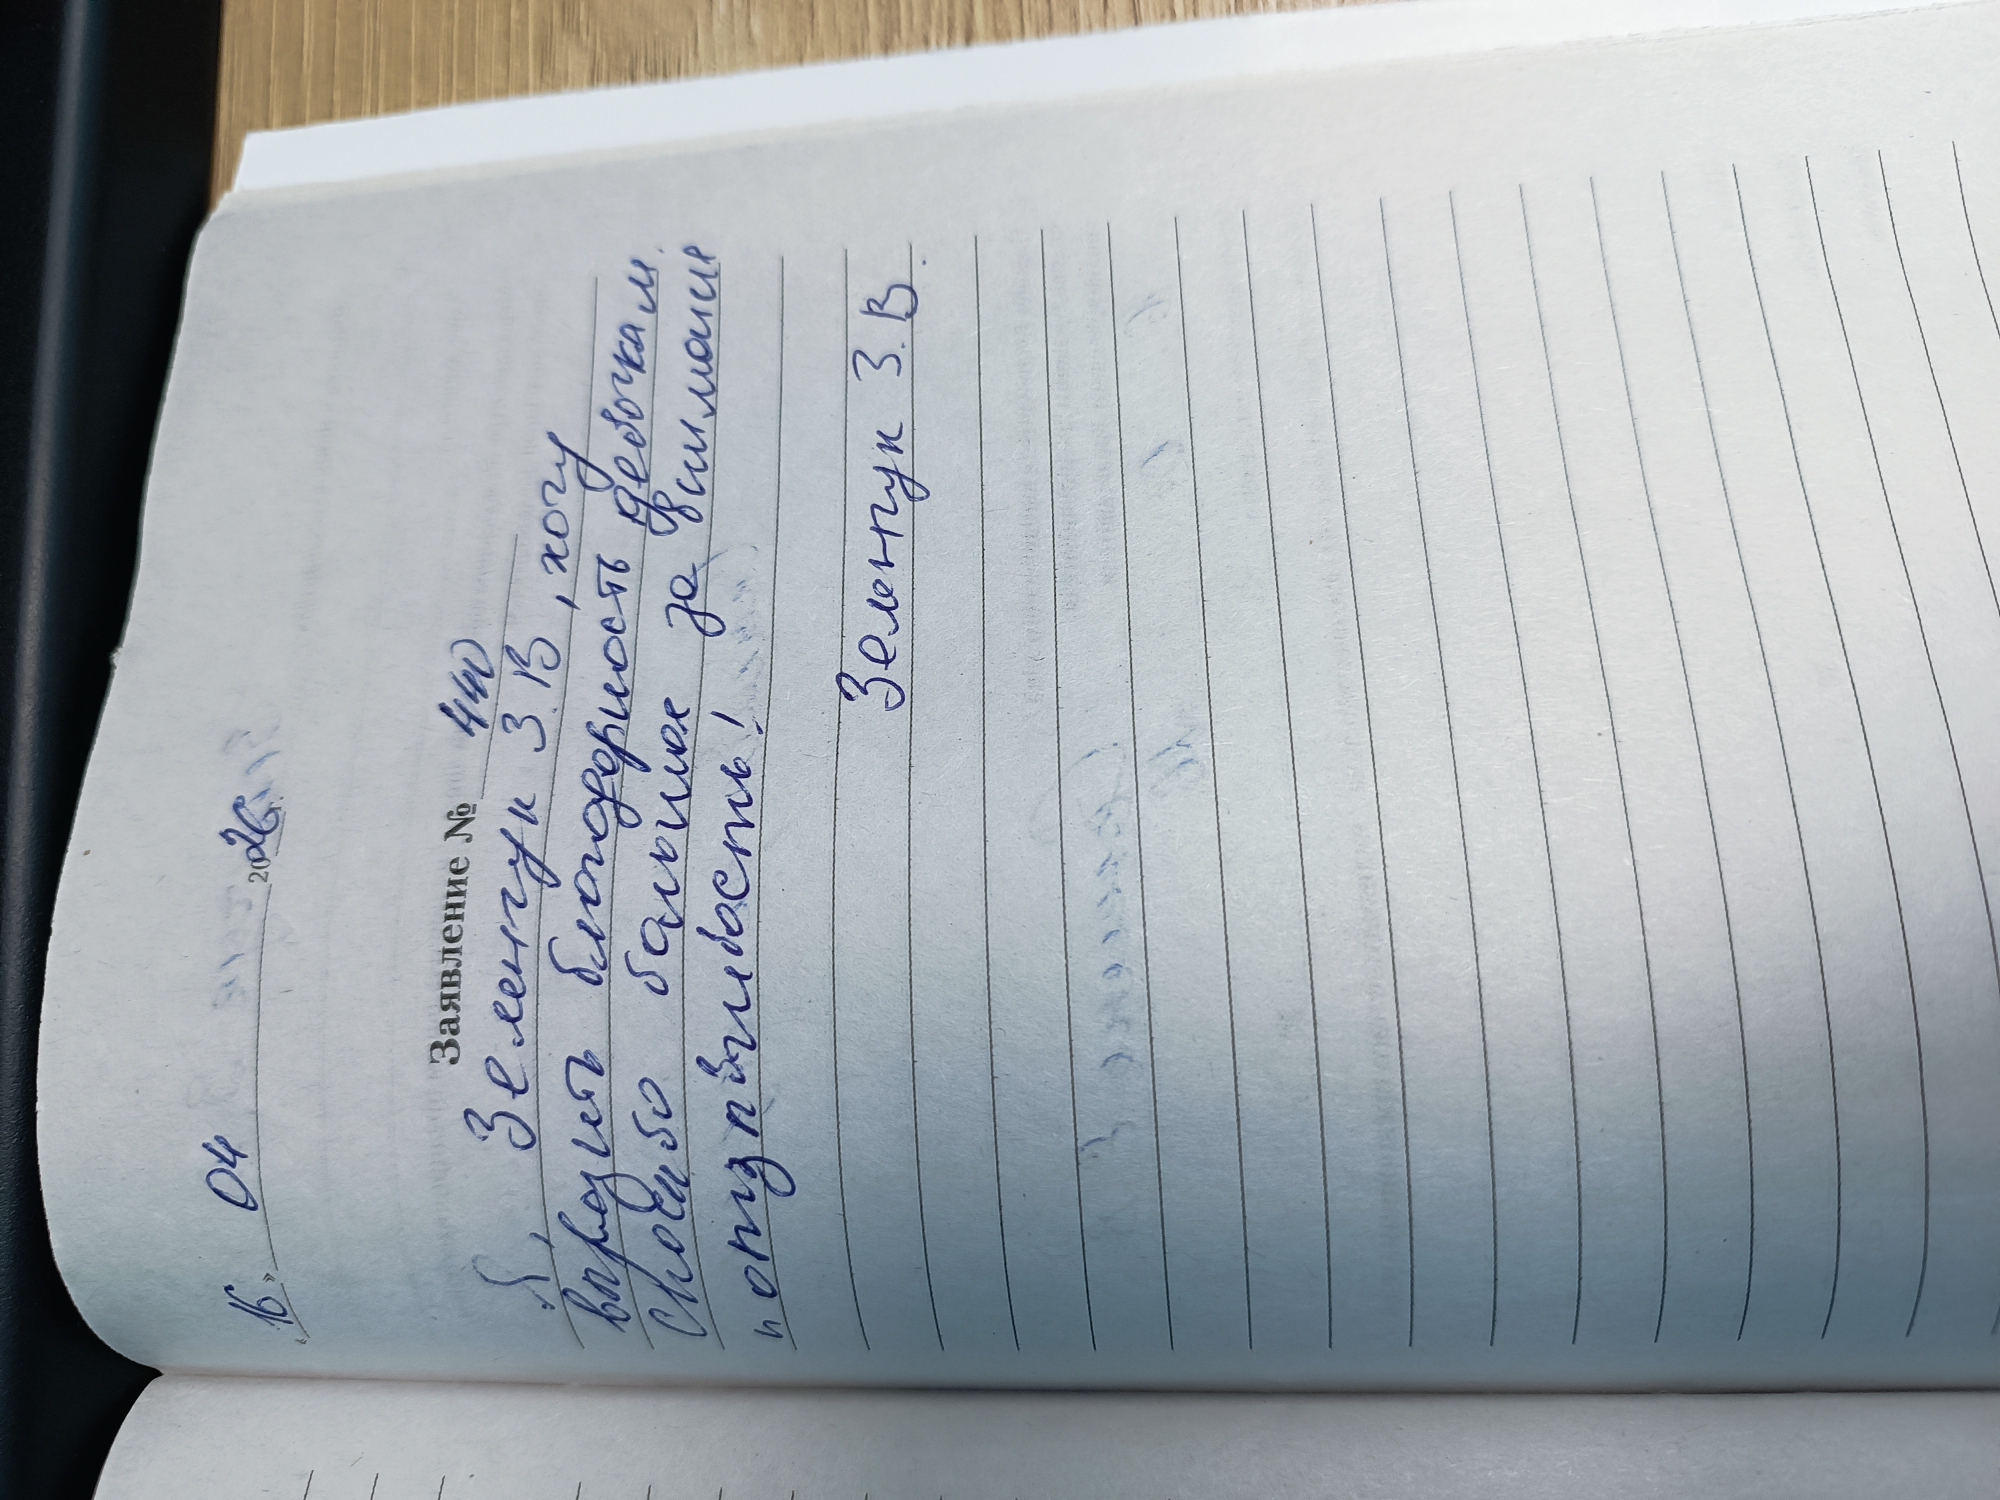 «16» 04 2026 г.
Заявление № 440
Я, Зеленчук З.В, хочу
выразить благодарность девочкам.
Спасибо большое за внимание
и отзывчивость!
Зеленчук З.В.